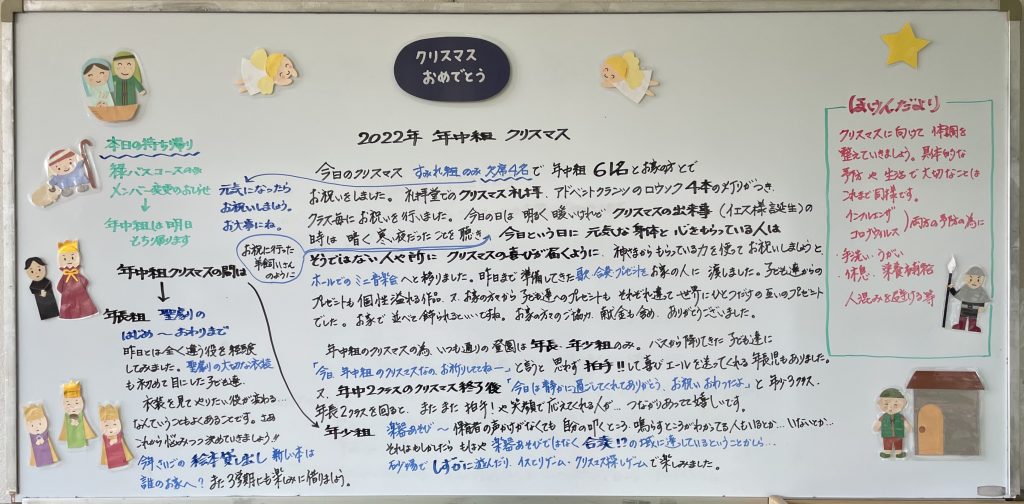 クリスマス
おめでとう
2022年 年中組 クリスマス
本日の持ち帰り
緑バスコースのみ
メンバー変更のおしらせ
↓
年中組は明日
もち帰ります
元気になったら
お祝いしましょう。
お大事にね。
お祝に行った
羊飼いさん
のように
今日のクリスマス すみれ組のみ 欠席4名で 年中組 61名とお家の方とで
お祝いをしました。 礼拝堂でのクリスマス礼拝、アドベントクランツのロウソク 4本の灯りがつき、
クラス毎にお祝いを行いました。 今日の日は 明るく暖いけれど クリスマスの出来事 (イエス様誕生)の
時は 暗く寒い夜だったことを聴き 今日という日に 元気な身体と心をもっている人は
そうではない人や所に クリスマスの喜びが届くように、神さまからもらっている力を使って お祝いしましょうと
ホールでのミニ音楽会へと移りました。 昨日まで準備してきた歌・合奏・プレゼントを お家の人に 渡しました。 子ども達からの
プレゼントも 個性溢れる作品、又、お家の方々から 子ども達へのプレゼントも それぞれ違って世界にひとつだけの互いのプレゼント
でした。 お家で 並べて飾られるといいですね。 お家の方々のご協力、献金も含め、ありがとうございました。
年中組のクリスマスの為、いつも通りの登園は 年長、年少組のみ。 バスから降りてきた子ども達に
「今日、年中組のクリスマスなの、お祈りしててねー」と言うと 思わず 拍手!! して喜びエールを送ってくれる年長児もありました。
又、年中2クラスのクリスマス終了後 「今日は静かに過ごしてくれてありがとう、お祝いおわったよ」と 年少3クラス、
年長2クラスを回ると、またまた拍手!や 笑顔で応えてくれる人が… つながりあってて嬉しいです。
年中組クリスマスの間は
年長組 聖劇の
はじめ ～ おわりまで
昨日とは全く違う役を経験
してみました。 聖劇の大切な衣装
も 初めて目にした子ども達、
衣装を見てやりたい役が変わる…
なんていうこともよくあることです。
これから悩みつつ決めていきましょう!!
今年さいごの 絵本貸し出し 新しい本は
誰のお家へ? また3学期にも楽しみに借りましょう。
年少組 楽器あそび ～ 保育者の声かけがなくても 自分の叩くところ・鳴らすところがわかってる人もいるとか…いないとか…
それはもしかしたら もはや 楽器あそびではなく 合奏!? の域に達しているということかしら…
砂場で しずかに遊んだり、イス とりゲーム・クリスマス探しゲームで楽しみました。
(ほけんだより)
クリスマスに向けて 体調を
整えていきましょう。 具体的な
予防や生活で大切なことは
これまで同様です。
インフルエンザ
コロナウィルス ) 両方の予防の為に
・手洗い・うがい
・休息・栄養補給
人混みを避ける等